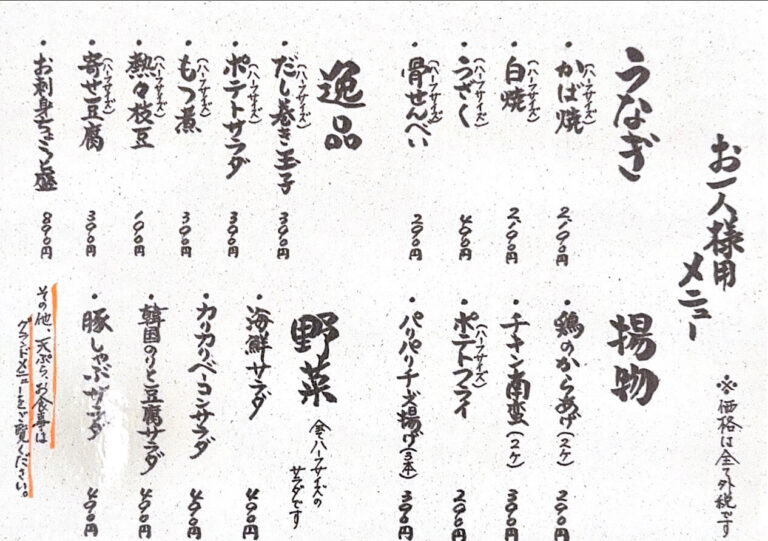 お一人様用
メニュー
※価格は全て外税です
うなぎ
・かば焼(ハーフサイズ) 2,100円
・白焼(ハーフサイズ) 2,100円
・うざく(ハーフサイズ) 490円
・骨せんべい(ハーフサイズ) 290円
逸品
・だし巻き玉子(ハーフサイズ) 390円
・ポテトサラダ(ハーフサイズ) 390円
・もつ煮(ハーフサイズ) 390円
・熱々枝豆(ハーフサイズ) 190円
・寄せ豆腐(ハーフサイズ) 390円
・お刺身ちょこっと盛 890円
揚物
・鶏のからあげ(2ケ) 290円
・チキン南蛮(2ケ) 390円
・ポテトフライ(ハーフサイズ) 290円
・パリパリチーズ揚げ(3本) 390円
野菜
(全てハーフサイズの
サラダです
・海鮮サラダ 490円
・カリカリベーコンサラダ 490円
・韓国のりと豆腐サラダ 490円
・豚しゃぶサラダ 490円
その他、天ぷら、お食事は
グランドメニューをご覧ください。